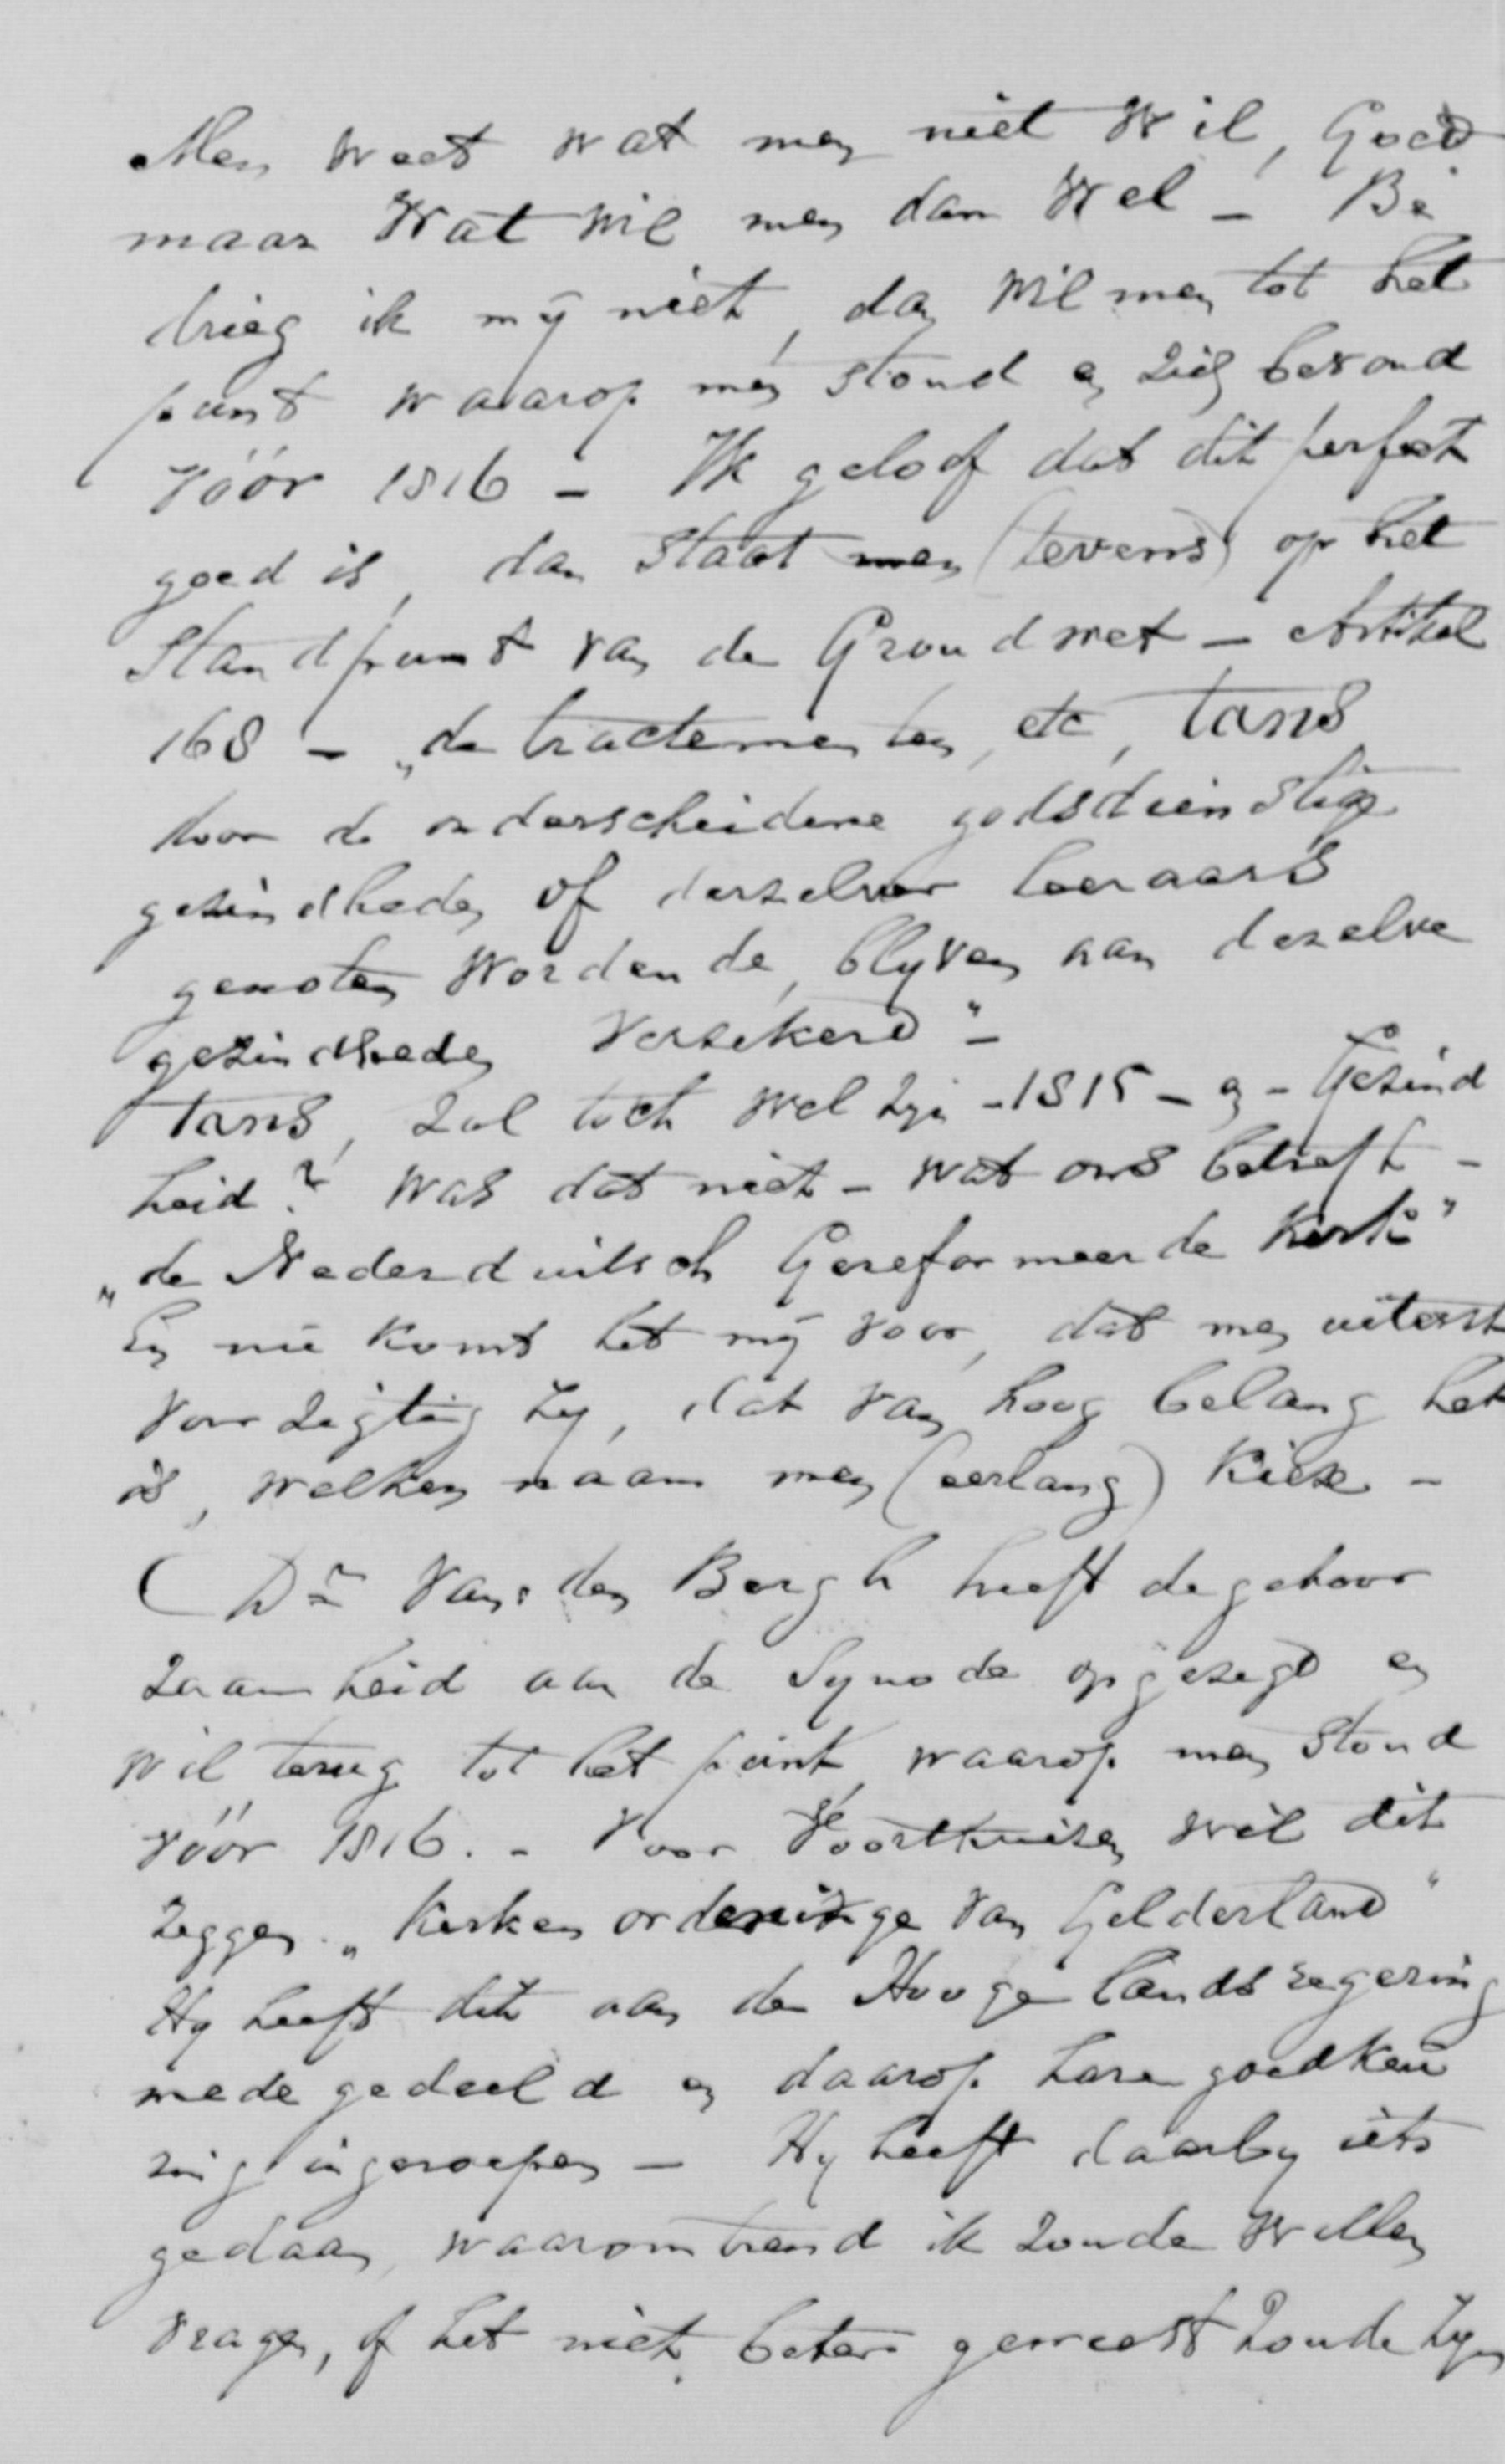 Men weet wat men niet wil, Goed
maar Wat wil men dan Wel – Be
drieg ik mÿ niet, dan wil men tot het
punt waarop men stond en zich bevond
vóór 1816 – Ik geloof dat dit perfect
goed is, dan staat men (tevens) op het
Standpunt van de Grondwet – Artikel
168 – „de tractementen, etc, tans
door de onderscheidene godsdienstige
gezindheden of derzelver leeraars
genoten wordende, blyven aan dezelve
gezindheden verzekerd" –
Tans, zal toch wel zyn – 1815 – en – Gezind
heid? Was dat niet – wat ons betreft –
„de Nederduitsch Gereformeerde Kerk"
En nu komt het mÿ voor, dat men uiterst
voorzigtig zy, dat van hoog belang het
is, welken naam men (eerlang) kieze –
(Dr van den Bergh heeft de gehoor
zaamheid aan de Synode opgezegd en
wil terug tot het punt waarop men stond
vóór 1816. – Voor Voorthuizen wil dit
zeggen „Kerken ordeninge van Gelderland"
Hy heeft dit aan de Hooge landsregering
mede gedeeld en daarop hare goedkeu
ring ingeroepen – Hy heeft daarby iets
gedaan, waaromtrend ik zoude willen
vragen, of het niet beter geweest zoude zyn